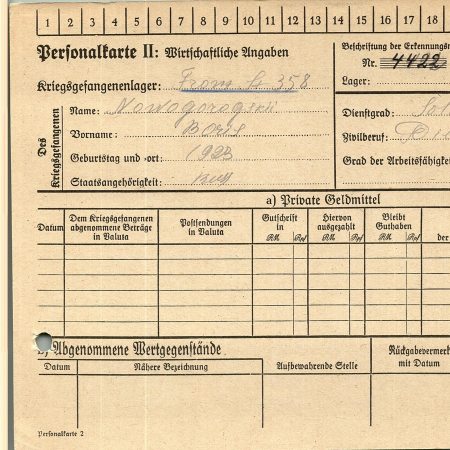 1 2 3 4 5 6 7 8 9 10 11 12 13 14 15 16 17 18
Personalkarte II: Wirtschaftliche Angaben
Beschriftung der Erkennungsm
Nr. 4422
Kriegsgefangenenlager: Front St. 358
Lager:
Des Kriegsgefangenen
Name:
Dienstgrad: Sol
Vorname: Boris
Zivilberuf:
Geburtstag und -ort: 1923
Grad der Arbeitsfähigkeit
Staatsangehörigkeit: Russ
a) Private Geldmittel
Datum
Dem Kriegsgefangenen abgenommene Beträge in Valuta
Postsendungen in Valuta
Gutschrift in
RM Rpf
Hiervon ausgezahlt
RM Rpf
Bleibt Guthaben
RM Rpf
der
b) Abgenommene Wertgegenstände
Datum
Nähere Bezeichnung
Aufbewahrende Stelle
Rückgabevermerk mit Datum
Personalkarte 2